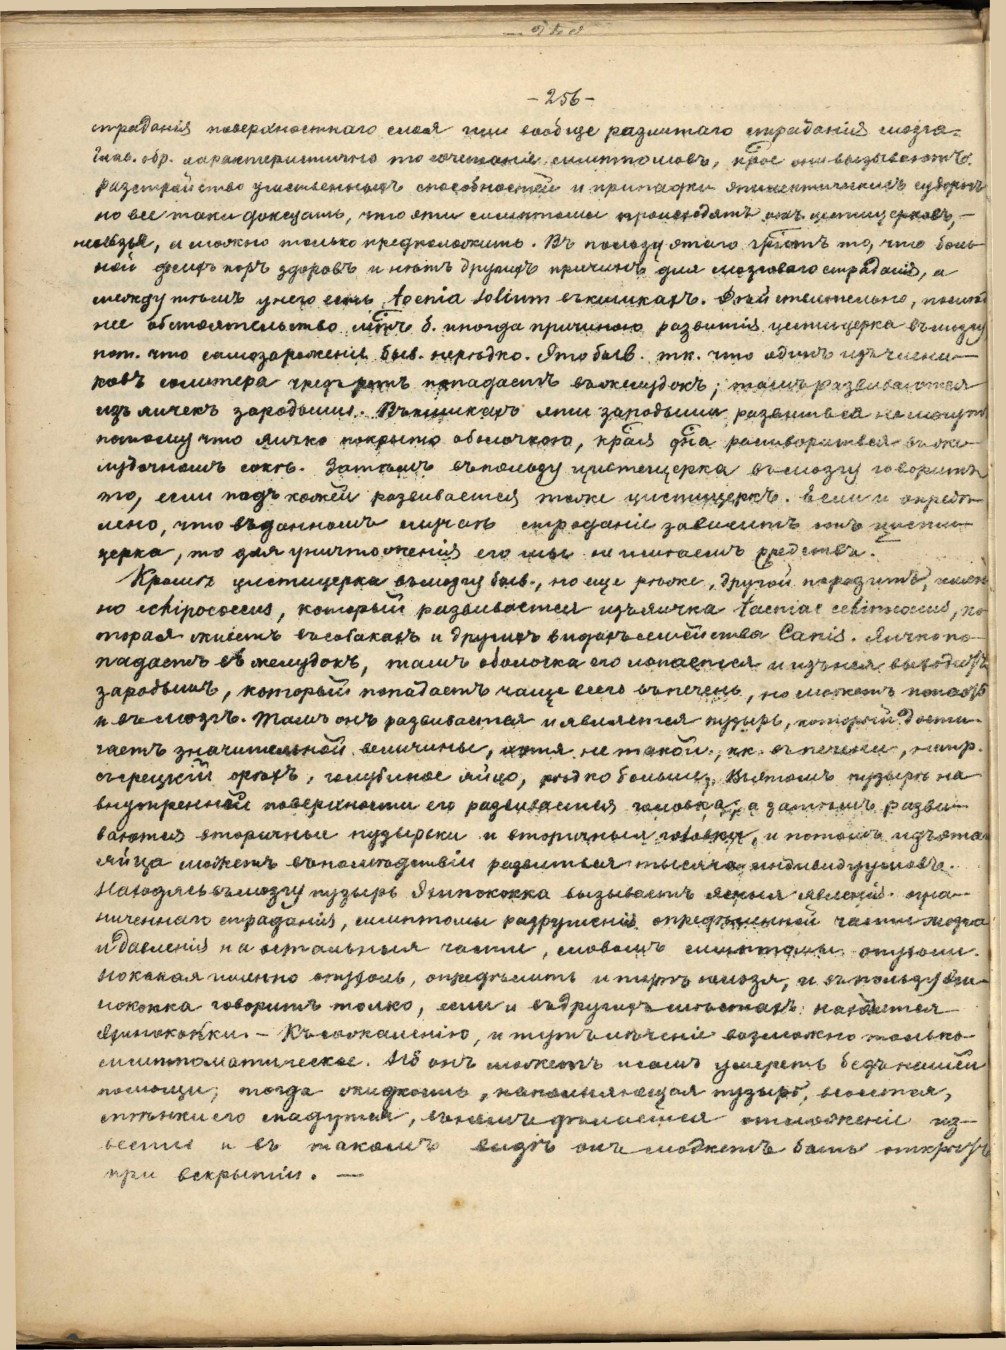 - 256 -
страданія поверхностнаго слоя или вообще разлитаго страданія мозга.
Глав. обр. характеристично то сочетаніе симптомовъ, крое они вызываютъ.
Разстройство умственныхъ способностей и припадки эпилептическихъ судорогъ
но все таки доказать, что эти симптомы происходятъ отъ цистицерковъ, –
нельзя, а можно только предположить. Въ пользу этаго гритъ то, что боль-
ной физъ поръ здоровъ и нѣтъ другихъ причинъ для мозговаго страданія, а
между тѣмъ у него есть taenia solium въ кишкахъ. Дѣйствительно, послѣд
нее обстоятельство мтъ б. иногда причиною развитія цистицерка въ мозгу
пот. что самозараженіе быв. нерѣдко. Это быв. тк. что одинъ изъ члени-
ковъ солитера чрезъ ротъ попадаетъ въ желудокъ; тамъ развиваются
изъ яичекъ зародыши. Въ кишкахъ эти зародыши развиться не могутъ
потому что яичко покрыто оболочкою, края дна растворяться въ же-
лудочномъ сокѣ. Затѣмъ въ пользу цистицерка въ мозгу говоритъ
то, если подъ кожей развивается тоже цистицеркъ. Если и опредѣ-
лено, что въ данномъ случаѣ страданіе зависитъ отъ цисти-
церка, то для уничтоженія его мы не имѣемъ средства.
Кромѣ цистицерка въ мозгу быв., но еще рѣже, другой паразитъ, имен
но echipococcus, который развивается изъ яичка taeniae echinococcus, ко
торая живетъ въ собакахъ и другихъ видахъ семейства Canis. Яичко по-
падаетъ въ желудокъ, тамъ оболочка его лопается и изъ нея выходитъ
зародышъ, который попадаетъ чаще всего въ печень, но можетъ попасть
и въ мозгъ. Тамъ онъ развивается и является пузырь, который дости-
гаетъ значительной величины, хотя не такой, кк. въ печени, напр.
съ грецкій орѣхъ, голубиное яйцо, рѣдко больше. Въ этомъ пузырѣ на
внутренней поверхности его развивается головка, а затѣмъ разви-
ваются вторичные пузырьки и вторичныя головки, и потомъ изъ этаго
яйца можетъ впослѣдствіи развиться тысяча индивидуумовъ.
Находясь въ мозгу пузырь Эхинококка вызываетъ ясныя явленія огра-
ниченнаго страданія, симптомы разрушенія опредѣленной части мозга
и давленія на остальныя части, словомъ симптомы опухоли.
Но какая именно опухоль, опредѣлить и тутъ нельзя, и въ пользу Эхи-
нококка говоритъ только, если и въ другихъ мѣстахъ найдется
Эхинококки. – Къ сожаленію, и тутъ леченіе возможно только
симптоматическое. Но онъ можетъ и самъ умереть безъ нашей
помощи; тогда жидкость, наполняющая пузырь, всосется,
стѣнки его спадутся, въ немъ дѣлается отложеніе из-
вести и въ такомъ видѣ онъ можетъ быть открытъ
при вскрытіи. —